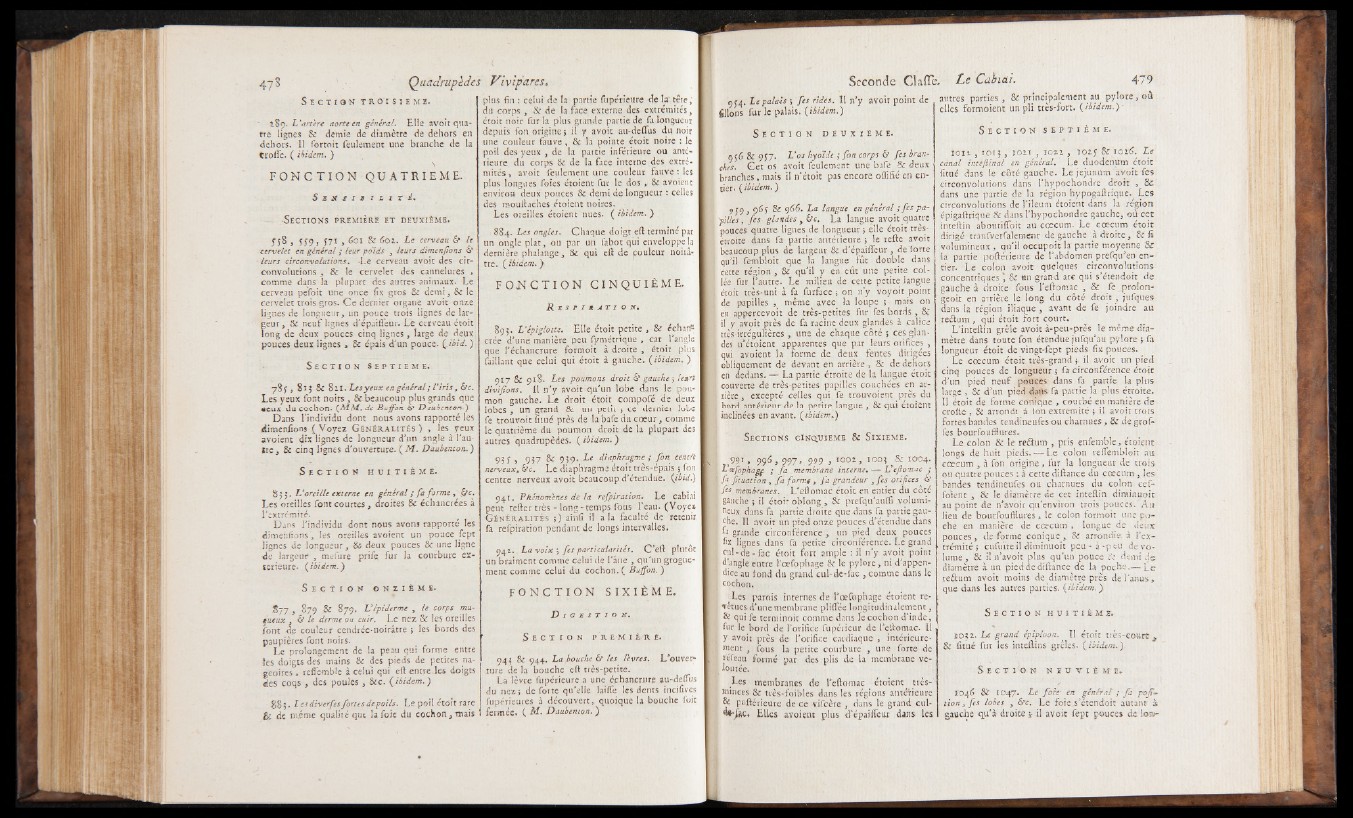 478 Quadrupèdes Vivipares.
SECTION TROISIEME.
289. L'artère aorte en général. Elle avoit qua-
tre lignes & demie de diamètre de dehors en
dehors. Il sortoit seulement une branche de la
crosse. ( ibidem. )
FONCTION QUATRIEME.
SENSIBILITÉ.
SECTIONS PREMIÈRE ET DEUXIÈME.
558, 559, 571, 601 & 602. Le cerveau & le
cervelet en général ; leur poids , leurs dimensions &
leurs circonvolutions. Le cerveau avoit des cir-
convolutions , & le cervelet des cannelures ,
comme dans la plupart des autres animaux. Le
cerveau pesoit une once six gros & demi, & le
cervelet trois gros. Ce dernier organe avoit onze
lignes de longueur, un pouce trois lignes de lar-
geur , & neuf lignes d'épaisseur. Le cerveau étoit
long de deux pouces cinq lignes, large de deux
pouces deux lignes , & épais d'un pouce. ( ibid. )
SECTION SEPTIEME.
785, 813 & 821. Les yeux en général ; l'iris, &c.
Les yeux sont noirs , & beaucoup plus grands que
ceux du cochon. (MM. de Buffon & Daubenton )
Dans l'individu dont nous avons rapporté les
dimensions ( Voyez GÉNÉRALITÉS ) , les yeux
avoient dix lignes de longueur d'un angle à l'au-
tre , & cinq lignes d'ouverture. ( M. Daubenton. )
SECTION HUITIÈME.
833. L'oreille externe en général ; sa forme, &c.
Les oreilles sont courtes, droites & échancrées à
l'extrémité.
Dans l'individu dont nous avons rapporté les
dimensions , les oreilles avoient un pouce sept
lignes de longueur, & deux pouces & une ligne
de largeur , mesure prise sur la courbure ex-
térieure. (ibidem.)
SECTION ONZIÈME.
877, 879 & 879. L'épiderme , le corps mu-
queux , & le derme ou cuir. Le nez & les oreilles
sont de couleur cendrée-noirâtre ; les bords des
paupières sont noirs.
Le prolongement de la peau qui forme entre
les doigts des mains & des pieds de petites na-
geoires , ressemble à celui qui est entre les doigts
des coqs , des poules , &c. (ibidem.)
883. Les diverses sortes de poils. Le poil étoit rare
& de même qualité que la soie du cochon, mais
plus fin : celui de la partie supérieure de la tête,
du corps , & de la face externe des extrémités,
étoit noir sur la plus grande partie de sa longueur
depuis son origine ; il y avoit au-dessus du noir
une couleur fauve, & la pointe étoit noire : le
poil des yeux , de la partie inférieure ou anté-
rieure du corps & de la face interne des extré-
mités, avoit seulement une couleur fauve : les
plus longues soies étoient sur le dos , & avoient
environ deux pouces & demi de longueur : celles
des moustaches étoient noires.
Les oreilles étoient nues. ( ibidem. )
884. Les ongles. Chaque doigt est terminé par
un ongle plat, ou par un sabot qui enveloppe la
dernière phalange , & qui est de couleur noirâ-
tre. ( ibidem. )
FONCTION CINQUIÈME.
RESPIRATION.
893. L'épiglotte. Elle étoit petite , & échan-
crée d'une manière peu symétrique , car l'angle
que l'échancrure formoit à droite , étoit plus
saillant que celui qui étoit à gauche. (ibidem.)
917 & 918. Les poumons droit & gauche ; leurs
divisions. Il n'y avoit qu'un lobe dans le pou-
mon gauche. Le droit étoit composé de deux
lobes , un grand & un petit ; ce dernier lobe
se trouvoit situé près de la base du cœur, comme
le quatrième du poumon droit de la plupart des
autres quadrupèdes. ( ibidem. )
935 , 937 & 939. Le diaphragme ; son centre
nerveux, &c. Le diaphragme étoit très-épais ; son
centre nerveux avoit beaucoup d'étendue. (ibid.)
941. Phénomènes de la respiration. Le cabiai
peut rester très-long-temps sous l'eau. (Voyez
GÉNÉRALITÉS ;) ainsi il a la faculté de retenir
sa respiration pendant de longs intervalles.
942. La voix ; ses particularités. C'est plutôt
un braiment comme celui de l'âne , qu'un grogne-
ment comme celui du cochon. ( Buffon. )
FONCTION SIXIÈME.
DIGESTION.
SECTION PREMIÈRE.
943 & 944. La bouche & les lèvres. L'ouver-
ture de la bouche est très-petite.
La lèvre supérieure a une échancrure au-dessous
du nez ; de sorte qu'elle laisse les dents incisives
supérieures à découvert, quoique la bouche soit
fermée. ( M. Daubenton. )
Seconde Classe. Le Cabiai. 479
954. Le palais ; ses rides. Il n'y avoit point de
sillons sur le palais. (ibidem.)
SECTION DEUXIEME.
956 & 957. L'os hyoïde ; son corps & ses bran-
ches. Cet os avoit seulement une base & deux
branches , mais il n'étoit pas encore ossifié en en-
tier. ( ibidem. )
959, 965 & 966. La langue en général ; ses pa-
pilles , ses glandes, &c. La langue avoit quatre
pouces quatre lignes de longueur ; elle étoit très-
étroite dans sa partie antérieure ; le reste avoit
beaucoup plus de largeur & d'épaisseur , de sorte
qu'il sembloit que la langue fût double dans
cette région , & qu'il y en eût une petite col-
lée sur l'autre. Le milieu de cette petite langue
étoit très-uni à sa surface ; on n'y voyoit point
de papilles , même avec la loupe ; mais on
en appercevoit de très-petites sur ses bords , &
il y avoit près de sa racine deux glandes à calice
très-irrégulières , une de chaque côté ; ces glan-
des n'étoient apparentes que par leurs orifices ,
qui avoient la forme de deux fentes dirigées
obliquement de devant en arrière , & de dehors
en dedans. — La partie étroite de la langue étoit
couverte de très-petites papilles couchées en ar-
rière , excepté celles qui se trouvoient près du
bord antérieur de la petite langue , & qui étoient
inclinées en avant. (ibidem.)
SECTIONS CINQUIEME & SIXIEME.
991 , 996 , 997, 999 , 1002 , 1003 & 1004.
L'œsophage ; sa membrane interne. — L'estomac ;
sa situation, sa forme , sa grandeur , ses orifices &
ses membranes. L'estomac étoit en entier du côté
gauche ; il étoit oblong , & presqu'aussi volumi-
neux dans sa partie droite que dans sa partie gau-
che. Il avoit un pied onze pouces d'étendue dans
sa grande circonférence , un pied deux pouces
six lignes dans sa petite circonférence. Le grand
cul-de-sac étoit fort ample : il n'y avoit point
d'angle entre l'œsophage & le pylore, ni d'appen-
dice au fond du grand cul-de-sac , comme dans le
cochon.
Les parois internes de l'œsophage étoient re-
vêtues d'une membrane plissée longitudinalement,
& qui se terminoit comme dans le cochon d'inde,
sur le bord de l'orifice supérieur de l'estomac. Il
y avoit près de l'orifice cardiaque , intérieure-
ment , sous la petite courbure , une sorte de
réseau formé par des plis de la membrane ve-
loutée.
Les membranes de l'estomac étoient très-
minces & très-foibles dans les régions antérieure
& postérieure de ce viscère , dans le grand cul-
de-sac. Elles avoient plus d'épaisseur dans les
autres parties , & principalement au pylore, où
elles formoient un pli très-fort. (ibidem.)
SECTION SEPTIÈME.
1011 , 1013 , 1021 , 1022 , 1025 & 1026. Le
canal intestinal en général. Le duodenum étoit
situé dans le côté gauche. Le jejunum avoit ses
circonvolutions dans l'hypochondre droit , &
dans une partie de la région hypogastrique. Les
circonvolutions de l'ileum étoient dans la région
épigastrique & dans l'hypochondre gauche, où cet
intestin aboutissoit au cœcum. Le cœcum étoit
dirigé transversalement de gauche à droite , & si
volumineux , qu'il occupoit la partie moyenne &
la partie postérieure de l'abdomen presqu'en en-
tier. Le colon avoit quelques circonvolutions
concentriques, & un grand arc qui s'étendoit de
gauche à droite sous l'estomac , & se prolon-
geoit en arrière le long du côté droit , jusques
dans la région iliaque , avant de se joindre au
rectum , qui étoit fort court.
L'intestin grêle avoit à-peu-près le même dia-
mètre dans toute son étendue jusqu'au pylore ; sa
longueur étoit de vingt-sept pieds six pouces.
Le cœcum étoit très-grand ; il avoit un pied
cinq pouces de longueur ; sa circonférence étoit
d'un pied neuf pouces dans sa partie la plus
large , & d'un pied dans sa partie la plus étroite.
Il étoit de forme conique , courbé en manière de
crosse , & arrondi à son extrémité ; il avoit trois
fortes bandes tendineuses ou charnues , & de gros-
ses boursoufflures.
Le colon & le rectum , pris ensemble, étoient
longs de huit pieds. — Le colon ressembloit au
cœcum , à son origine, sur la longueur de trois
ou quatre pouces : à cette distance du cœcum , les
bandes tendineuses ou charnues du colon ces-
soient , & le diamètre de cet intestin diminuoit
au point de n'avoir qu'environ trois pouces. Au
lieu de boursoufflures, le colon formoit une po-
che en manière de cœcum , longue de deux
pouces, de forme conique , & arrondie à l'ex-
trémité ; ensuite il diminuoit peu-à-peu de vo-
lume , & il n'avoit plus qu'un pouce & demi de
diamètre à un pied de distance de la poche. — Le
rectum avoit moins de diamètre près de l'anus,
que dans les autres parties. (ibidem.)
SECTION HUITIÈME.
1032. Le grand épiploon. Il étoit très-court ,
& situé sur les intestins grêles. (ibidem.)
SECTION NEUVIÈME.
1046 & 1047. Le foie en général ; sa posi-
tion , ses lobes , &c. Le foie s'étendoit autant à
gauche qu'à droite ; il avoit sept pouces de lon-